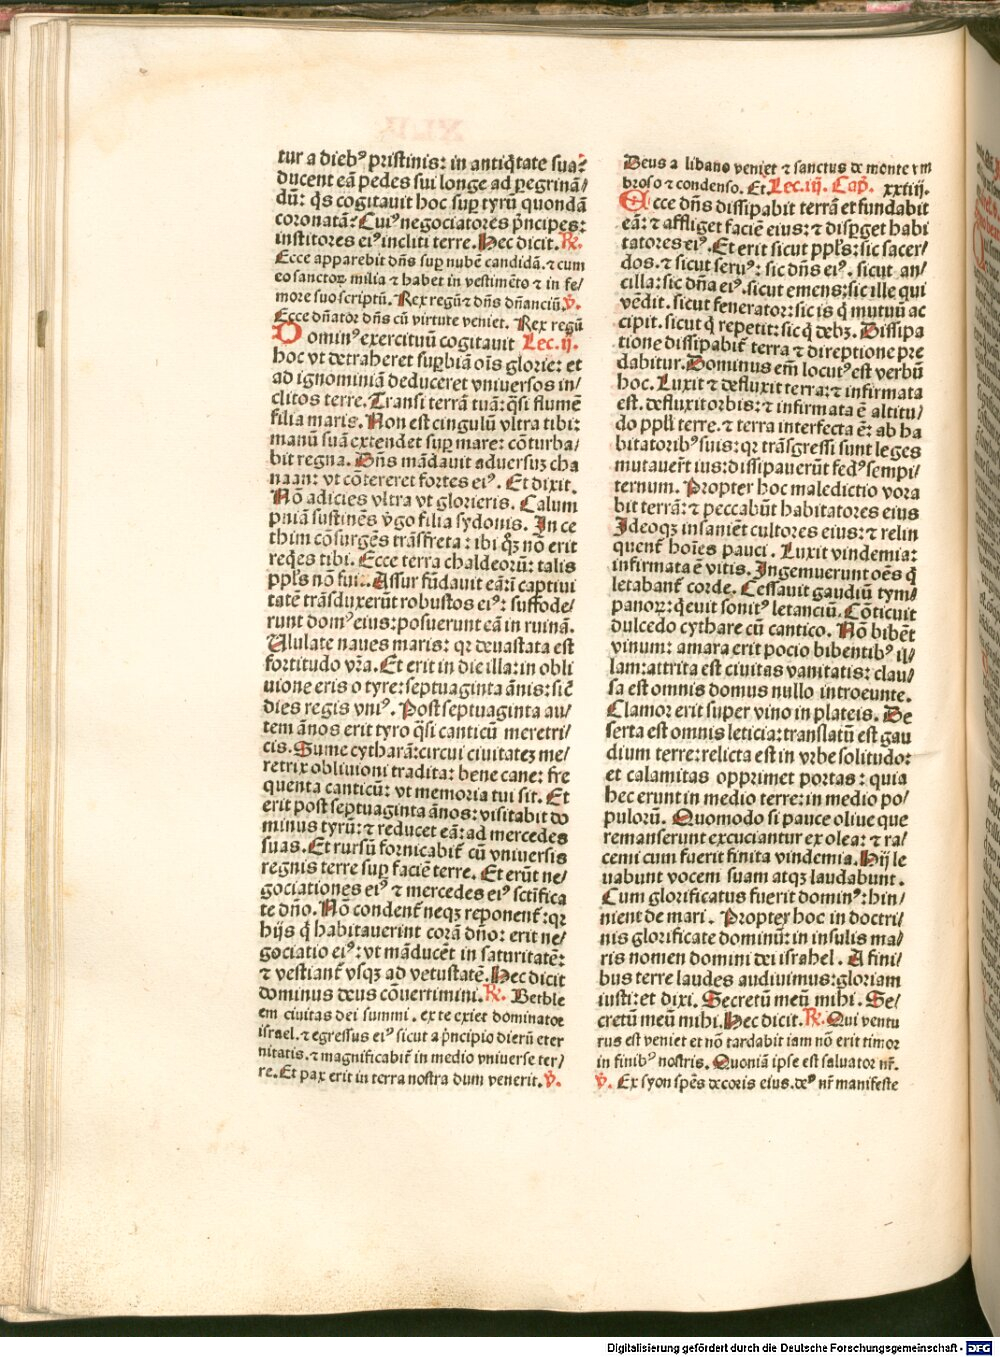 tur a diebꝰ pristinis: in antiq̃tate sua:
ducent eã pedes sui longe ad ꝑegrinã/
dũ: q̃s cogitauit hoc suꝑ tyrũ quondã
coronatã: Cuiꝰ negociatores pͥncipes:
institores eiꝰ incliti terre. Hec dicit. ℟.
Ecce apparebit dñs suꝑ nubẽ candidã. ⁊ cum
eo sanctoꝝ milia ⁊ habet in vestimẽto ⁊ in fe/
more suo scriptũ. Rex regũ ⁊ dñs dñanciũ. ℣.
Ecce dñator dñs cũ virtute veniet. Rex regũ
Dominꝰ exercituũ cogitauit Lec. ij.
hoc vt detraheret suꝑbiã oĩs glorie: et
ad ignominiã deduceret vniuersos in/
clitos terre. Transi terrã tuã: q̃si flumẽ
filia maris. Non est cingulũ vltra tibi:
manũ suã extendet suꝑ mare: cõturba/
bit regna. Dñs mãdauit aduersuʒ cha
naan: vt cõtereret fortes eiꝰ. Et dixit.
Nõ adicies vltra vt glorieris. Calum
pniã sustinẽs v̾go filia sydonis. In ce
thim cõsurgẽs trãsfreta: ibi q̊ʒ nõ erit
req̃es tibi. Ecce terra chaldeorũ: talis
ppl̃s nõ fuit. Assur fũdauit eã: ĩ captiui
tatẽ trãsduxerũt robustos eiꝰ: suffode/
runt domꝰ eius: posuerunt eã in ruinã.
Ululate naues maris: qꝛ deuastata est
fortitudo vr̃a. Et erit in die illa: in obli
uione eris o tyre: septuaginta ãnis: sic̃
dies regis vniꝰ. Post septuaginta au/
tem ãnos erit tyro q̃si canticũ meretri/
cis. Sume cytharã: circui ciuitateʒ me/
retrix obliuioni tradita: bene cane: fre
quenta canticũ: vt memoria tui sit. Et
erit post septuaginta ãnos: visitabit do
minus tyrũ: ⁊ reducet eã: ad mercedes
suas. Et rursũ fornicabit᷑ cũ vniuersis
regnis terre suꝑ faciẽ terre. Et erũt ne/
gociationes eiꝰ ⁊ mercedes eiꝰ sctĩfica
te dño. Nõ condent᷑ neqʒ reponent᷑: qꝛ
hijs q̃ habitauerint corã dño: erit ne/
gociatio eiꝰ: vt mãducẽt in saturitatẽ:
⁊ vestiant᷑ vsqʒ ad vetustatẽ. Hec dicit
dominus deus cõuertimini. ℟. Bethle
em ciuitas dei summi. ex te exiet dominator
israel. ⁊ egressus eiꝰ sicut a pͥncipio dierũ eter
nitatis. ⁊ magnificabit᷑ in medio vniuerse ter/
re. Et pax erit in terra nostra dum venerit. ℣.
Deus a libano veniet ⁊ sanctus de mõnte vm
broso ⁊ condenso. Et Lec. iij. Cap̃. xxiiij.
Ecce dñs dissipabit terrã et fundabit
eã: ⁊ affliget faciẽ eius: ⁊ disꝑget habi
tatores eiꝰ. Et erit sicut ppl̃s: sic sacer/
dos. ⁊ sicut seruꝰ: sic dñs eiꝰ. sicut an/
cilla: sic dña eiꝰ. sicut emens: sic ille qui
vẽdit. sicut fenerator: sic is q̃ mutuũ ac
cipit. sicut q̃ repetit: sic q̃ debʒ. Dissipa
tione dissipabit᷑ terra ⁊ direptione pre
dabitur. Dominus em̃ locutꝰ est verbũ
hoc. Luxit ⁊ defluxit terra: ⁊ infirmata
est. defluxit orbis: ⁊ infirmata ẽ altitu/
do ppl̃i terre. ⁊ terra interfecta ẽ: ab ha
bitatoribꝰ suis: qꝛ trãsgressi sunt leges
mutauer̃t ius: dissipauerũt fedꝰ sempi/
ternum. Propter hoc maledictio vora
bit terrã: ⁊ peccabũt habitatores eius
Ideoqʒ insaniẽt cultores eius: ⁊ relin
quent᷑ hoĩes pauci. Luxit vindemia:
infirmata ẽ vitis. Ingemuerunt oẽs q̃
letabant᷑ corde. Cessauit gaudiũ tym/
panoꝝ: q̃euit sonitꝰ letanciũ. Cõticuit
dulcedo cythare cũ cantico. Nõ bibẽt
vinum: amara erit pocio bibentibꝰ il/
lam: attrita est ciuitas vanitatis: clau/
sa est omnis domus nullo introeunte.
Clamor erit super vino in plateis. De
serta est omnis leticia: translatũ est gau
dium terre: relicta est in vrbe solitudo:
et calamitas opprimet portas: quia
hec erunt in medio terre: in medio po/
pulorũ. Quomodo si pauce oliue que
remanserunt excuciantur ex olea: ⁊ ra/
cemi cum fuerit finita vindemia. Hij le
uabunt vocem suam atqʒ laudabunt.
Cum glorificatus fuerit dominꝰ: hin/
nient de mari. Propter hoc in doctri/
nis glorificate dominũ: in insulis ma/
ris nomen domini dei israhel. A fini/
bus terre laudes audiuimus: gloriam
iusti: et dixi. Secretũ meũ mihi. Se/
cretũ meũ mihi. Hec dicit. ℟. Qui ventu
rus est veniet et nõ tardabit iam nõ erit timor
in finibꝰ nostris. Quoniã ipse est saluator nr̃.
℣. Ex syon spẽs decoris eius. deꝰ nr̃ manifeste
Digitalisierung gefördert durch die Deutsche Forschungsgemeinschaft - DFG